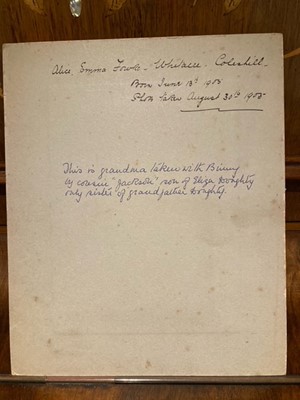 Alice Emma Fowle - Whitacre - Coleshill -
Born June 13th 1905
Photo taken August 30th 1905 -
This is grandma taken with Binny
by cousin "Jackson" son of Eliza Doughty
only sister of grandfather Doughty.